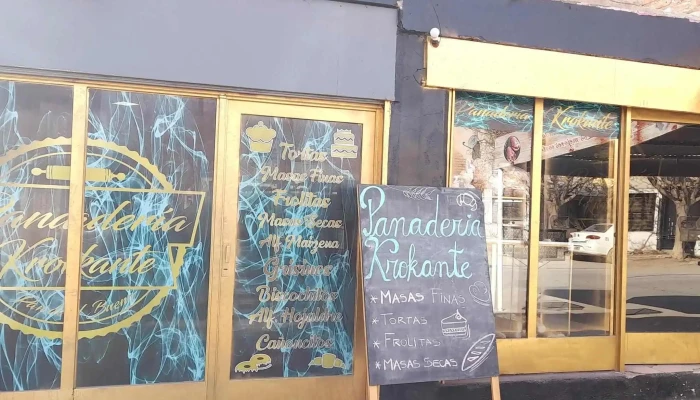 Panadería
Krokante
Tortas
Masas Finas
Frolitas
Masas Secas
Alf. Maizena
Grisines
Bizcochitos
Alf. Hojaldre
Cañoncitos
Panadería
Krokante
* MASAS FINAS
* TORTAS
* FROLITAS
* MASAS SECAS
Panadería Krokante